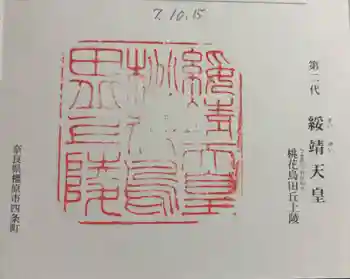 7.10.15
第二代
綏靖天皇
すい ぜい
桃花鳥田丘上陵
綏靖天皇
奈良県橿原市四条町